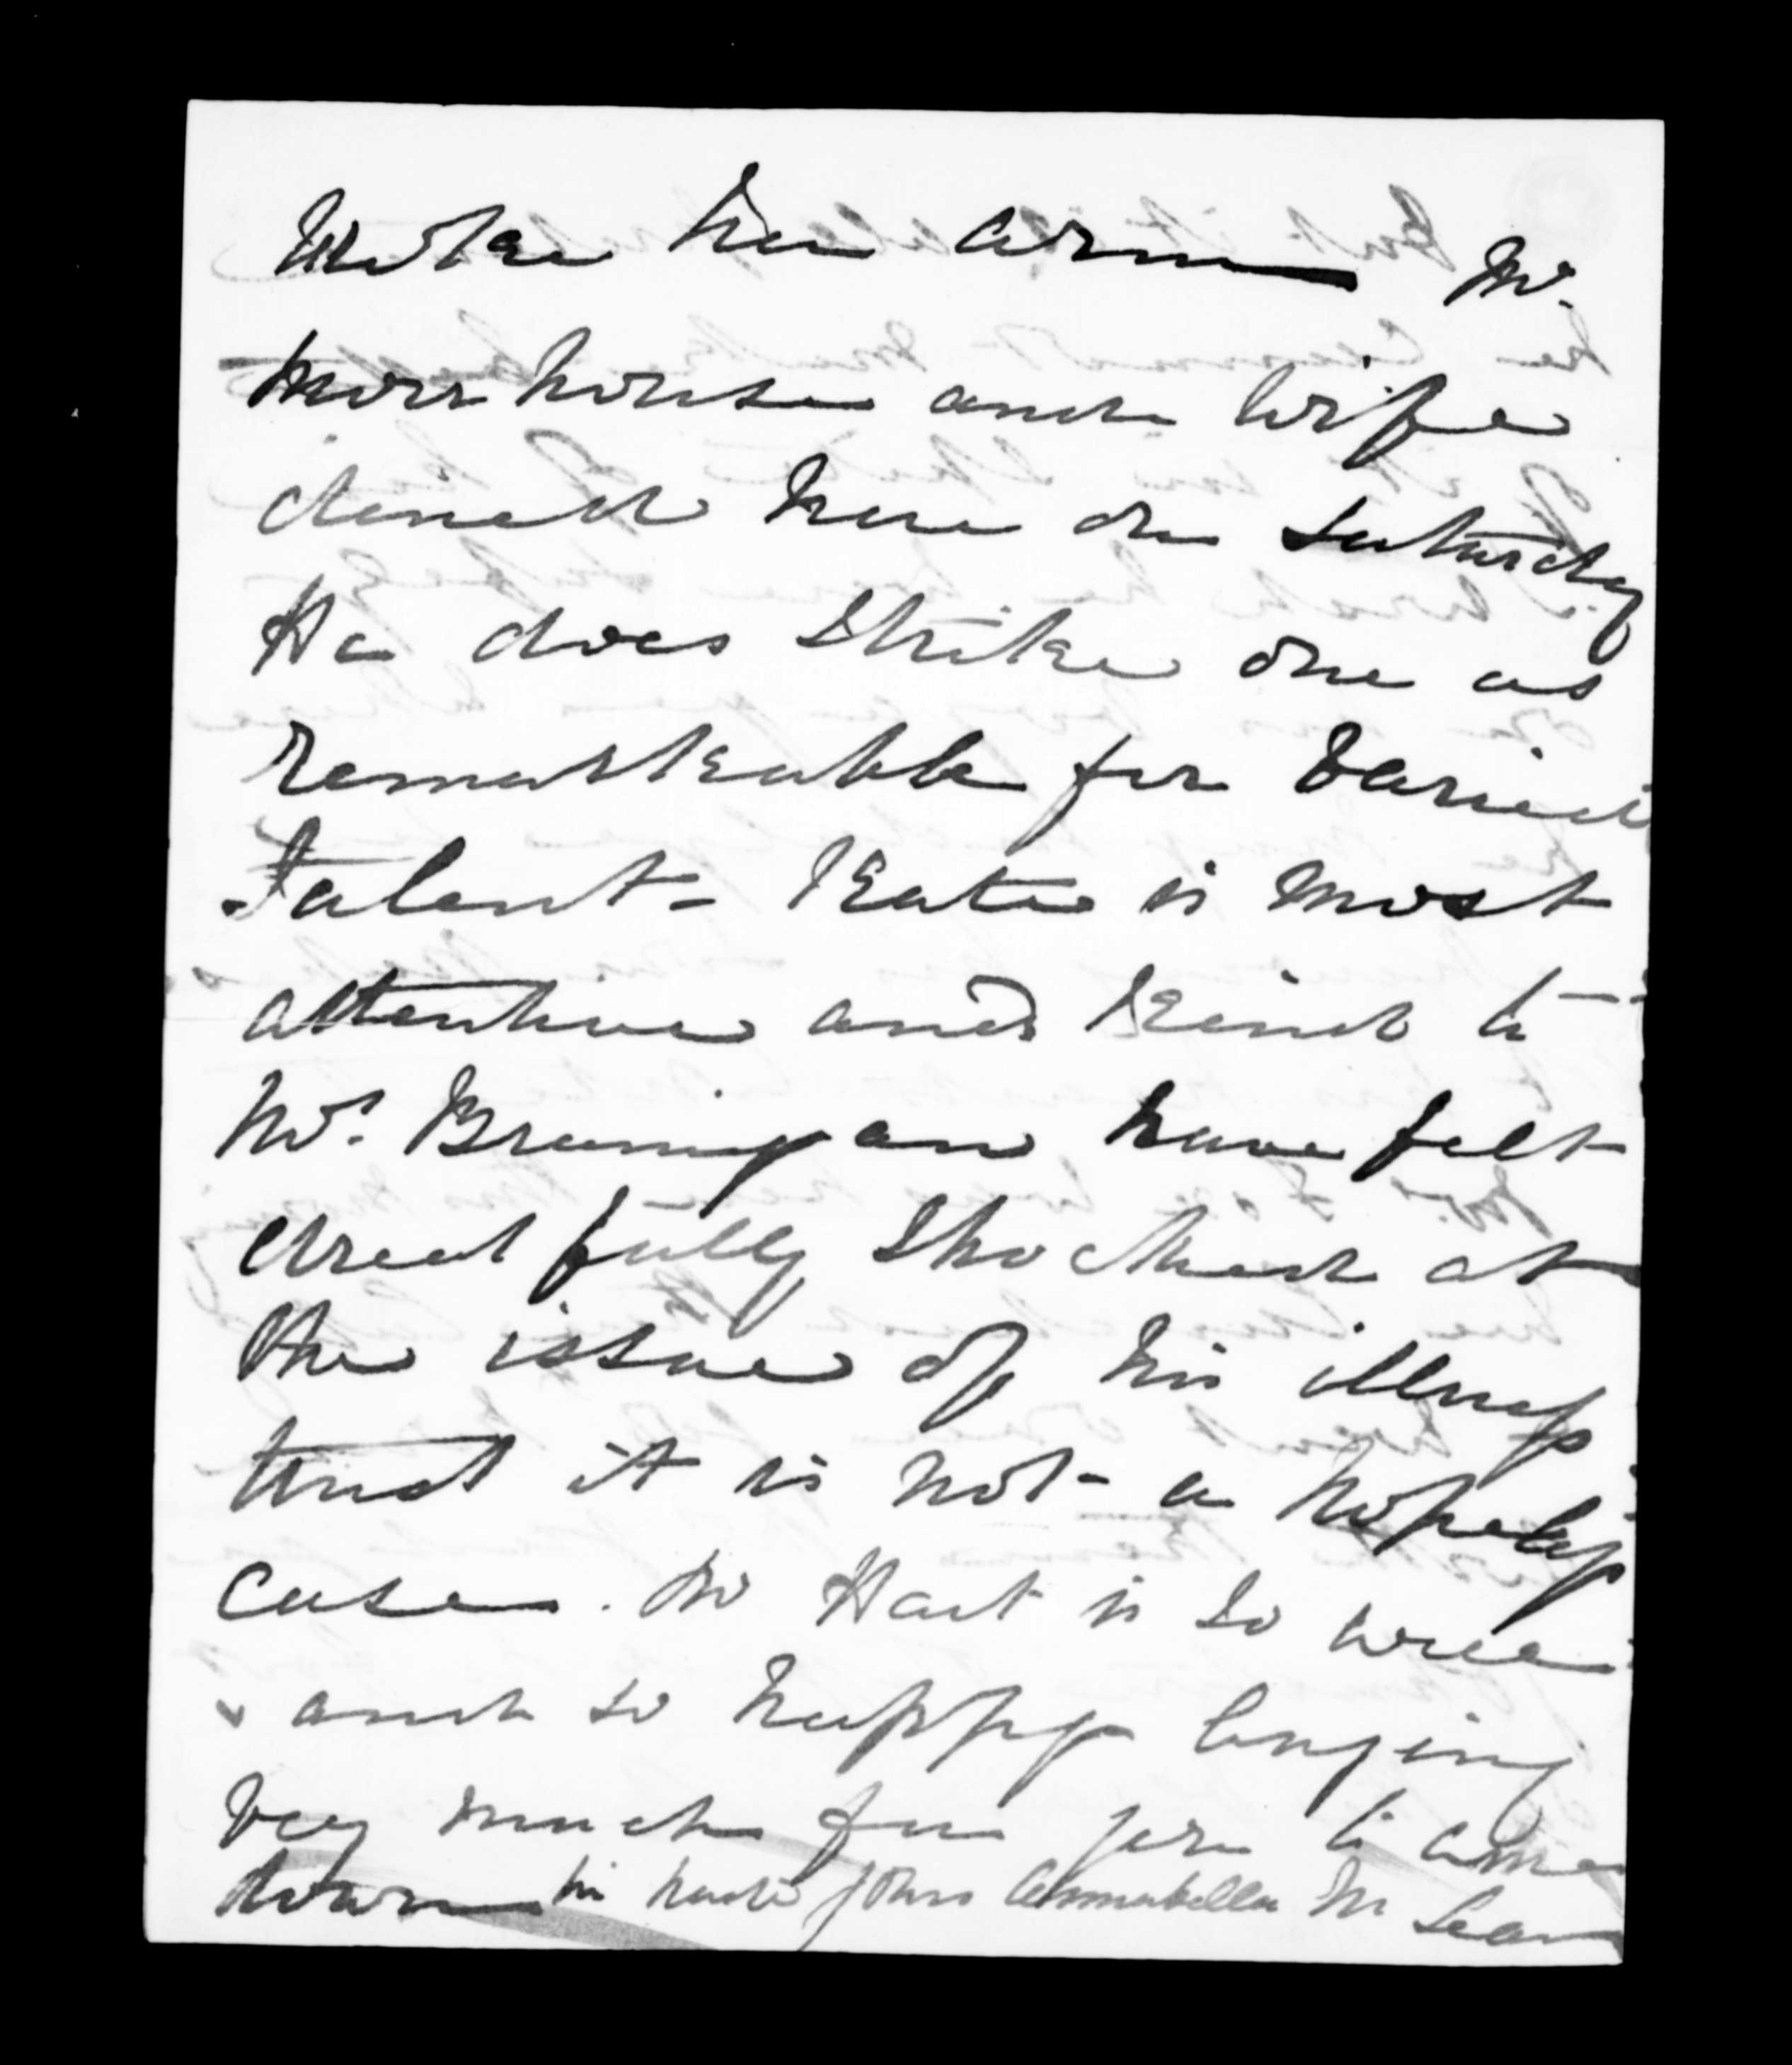 broke her arm Mr.
Moorhouse and wife
dined here on Saturday
He does strike one as
remarkable for varied
talent - Kate is most
attentive and kind to
Mr. Brannigan have felt
dreadfully shocked at
the issue of his illness
trust it is not a hopeless
case. Mr Hart is so well
and so happy longing
very much for you to come
down in haste yours Annabella McLean